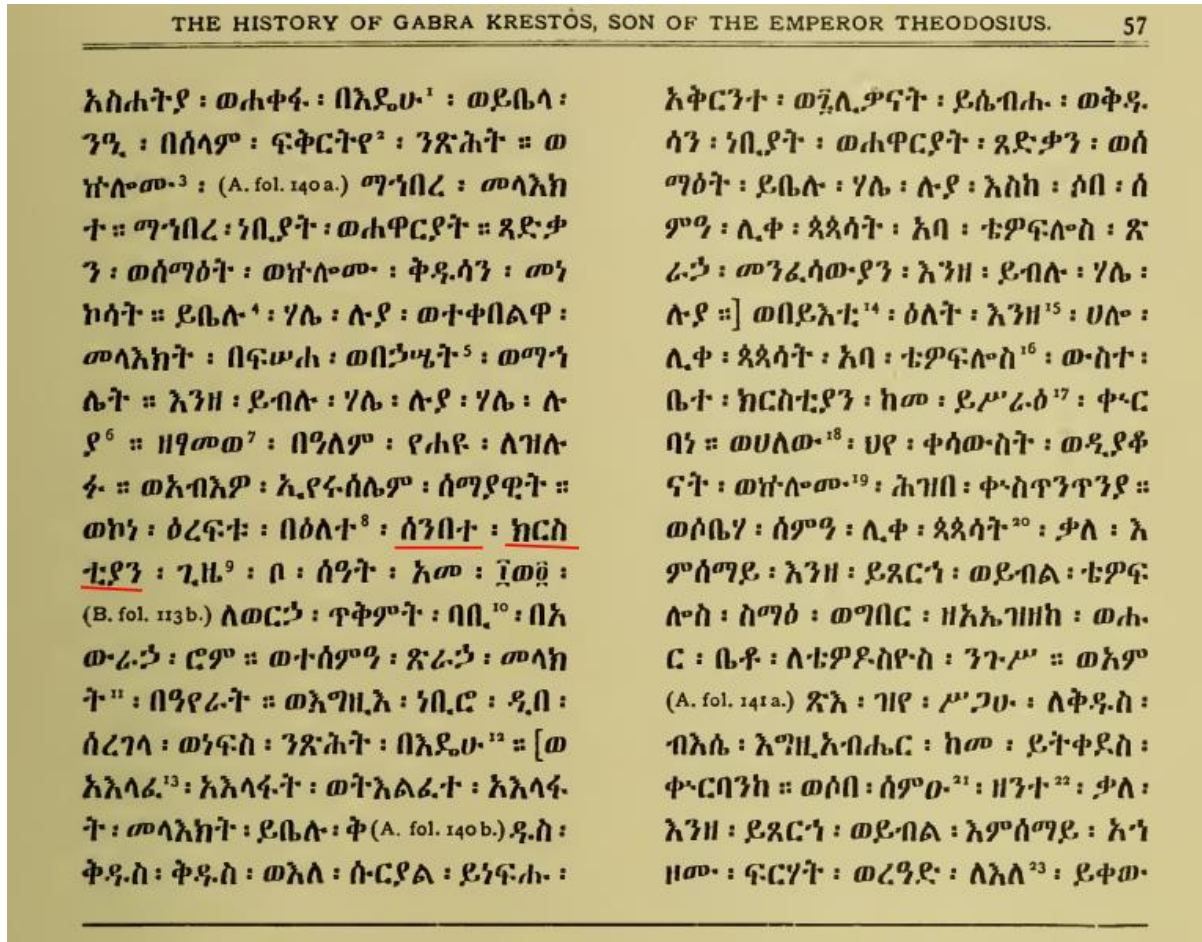 THE HISTORY OF GABRA KRESTÔS, SON OF THE EMPEROR THEODOSIUS. 57
አስሐትያ ፡ ወሐቀፋ ፡ በእዴሁ¹ ፡ ወይቤላ ፡
ንዒ ፡ በሰላም ፡ ፍቅርትየ² ፡ ንጽሕት ። ወ
ዅሎሙ³ ፡ (A. fol. 140 a.) ማኅበረ ፡ መላእክ
ት ። ማኅበረ ፡ ነቢያት ፡ ወሐዋርያት ። ጻድቃ
ን ፡ ወሰማዕት ፡ ወዅሎሙ ፡ ቅዱሳን ፡ መነ
ኮሳት ። ይቤሉ⁴ ፡ ሃሌ ፡ ሉያ ፡ ወተቀበልዋ ፡
መላእክት ፡ በፍሡሐ ፡ ወበኃሤት⁵ ፡ ወማኅ
ሌት ። እንዘ ፡ ይብሉ ፡ ሃሌ ፡ ሉያ ፡ ሃሌ ፡ ሉ
ያ⁶ ። ዘፃመወ⁷ ፡ በዓለም ፡ የሐዩ ፡ ለዝሉ
ፉ ። ወአብእዎ ፡ ኢየሩሰሌም ፡ ሰማያዊት ።
ወኮነ ፡ ዕረፍቱ ፡ በዕለተ⁸ ፡ ሰንበተ ፡ ክርስ
ቲያን ፡ ጊዜ⁹ ፡ ፀ ፡ ሰዓት ፡ አመ ፡ ፲ወ፬ ፡
(B. fol. 113 b.) ለወርኃ ፡ ጥቅምት ፡ ባቢ¹⁰ ፡ በአ
ውራኃ ፡ ሮም ። ወተሰምዓ ፡ ጽራኃ ፡ መላክ
ት¹¹ ፡ በዓየራት ። ወእግዚእ ፡ ነቢሮ ፡ ዲበ ፡
ሰረገላ ፡ ወነፍስ ፡ ንጽሕት ፡ በእዴሁ¹² ። [ወ
አእላፈ¹³ ፡ አእላፋት ፡ ወትእልፈተ ፡ አእላፋ
ት ፡ መላእክት ፡ ይቤሉ ፡ ቅ (A. fol. 140 b.) ዱስ ፡
ቅዱስ ፡ ቅዱስ ፡ ወእለ ፡ ሱርያል ፡ ይነፍሑ ፡
አቅርንተ ፡ ወ፯ሊቃናት ፡ ይሴብሑ ፡ ወቅዱ
ሳን ፡ ነቢያት ፡ ወሐዋርያት ፡ ጻድቃን ፡ ወሰ
ማዕት ፡ ይቤሉ ፡ ሃሌ ፡ ሉያ ፡ እስከ ፡ ሶበ ፡ ሰ
ምዓ ፡ ሊቀ ፡ ጳጳሳት ፡ አባ ፡ ቴዎፍሎስ ፡ ጽ
ራኃ ፡ መንፈሳውያን ፡ እንዘ ፡ ይብሉ ፡ ሃሌ ፡
ሉያ ።] ወበይእቲ¹⁴ ፡ ዕለት ፡ እንዘ¹⁵ ፡ ሀሎ ፡
ሊቀ ፡ ጳጳሳት ፡ አባ ፡ ቴዎፍሎስ¹⁶ ፡ ውስተ ፡
ቤተ ፡ ክርስቲያን ፡ ከመ ፡ ይሥራዕ¹⁷ ፡ ቍር
ባነ ። ወሀለው¹⁸ ፡ ህየ ፡ ቀሳውስት ፡ ወዲያቆ
ናት ፡ ወዅሎሙ¹⁹ ፡ ሕዝበ ፡ ቍስጥንጥንያ ።
ወሶቤሃ ፡ ሰምዓ ፡ ሊቀ ፡ ጳጳሳት²⁰ ፡ ቃለ ፡ እ
ምሰማይ ፡ እንዘ ፡ ይጸርኅ ፡ ወይብል ፡ ቴዎፍ
ሎስ ፡ ስማዕ ፡ ወግበር ፡ ዘአኤዝዘከ ፡ ወሑ
ር ፡ ቤቶ ፡ ለቴዎዶስዮስ ፡ ንጉሥ ። ወአም
(A. fol. 141 a.) ጽእ ፡ ዝየ ፡ ሥጋሁ ፡ ለቅዱስ ፡
ብእሴ ፡ እግዚአብሔር ፡ ከመ ፡ ይትቀደስ ፡
ቍርባንከ ። ወሶበ ፡ ሰምዑ²¹ ፡ ዘንተ²² ፡ ቃለ ፡
እንዘ ፡ ይጸርኅ ፡ ወይብል ፡ እምሰማይ ፡ አኀ
ዞሙ ፡ ፍርሃት ፡ ወረዓድ ፡ ለእለ²³ ፡ ይቀው